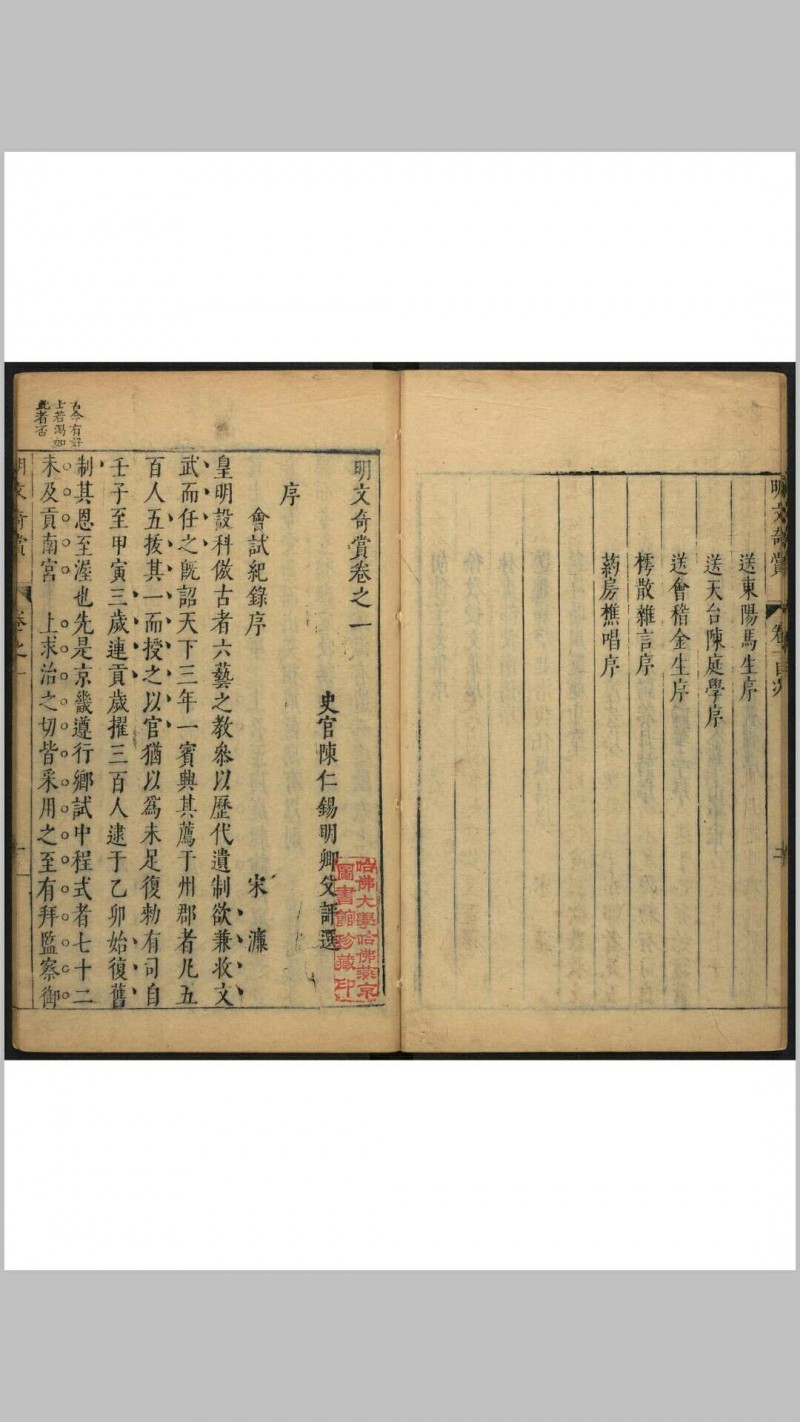 明文奇賞
送東陽馬生序
送天台陳庭學序
送會稽金生序
樗散雜言序
葯房樵唱序
明文奇賞卷之一
史官陳仁錫明卿父評選
序
會試紀錄序
宋濂
皇明設科倣古者六藝之教叅以歷代遺制欲兼收文
武而任之旣詔天下三年一賓興其薦于州郡者凡五
百人五拔其一而授之以官猶以爲未足復勑有司自
壬子至甲寅三歲連貢歲擢三百人逮于乙卯始復舊
制其恩至渥也先是京畿遵行鄉試中程式者七十二
未及貢南宮 上求治之切皆采用之至有拜監察御
古今有好
士若渴如
此者否
明文奇賞 卷之一
哈佛大學哈佛燕京
圖書館珍藏印